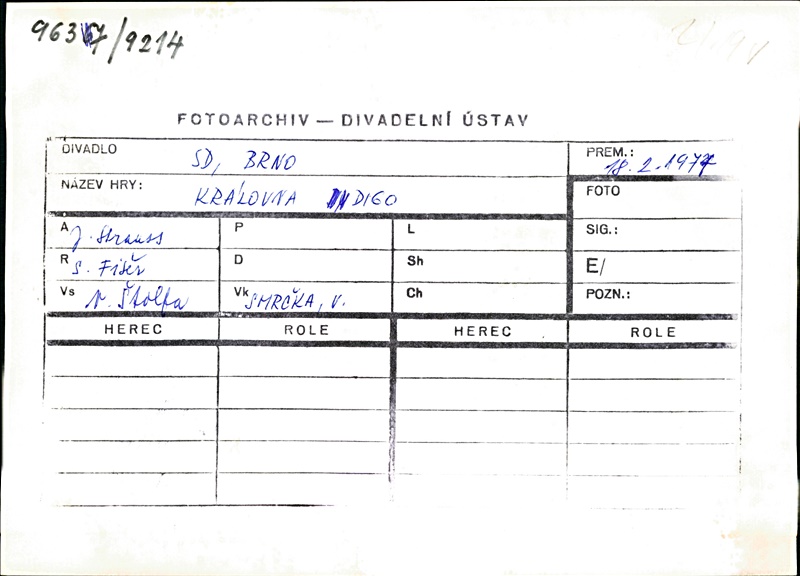 /9214
FOTOARCHIV — DIVADELNÍ ÚSTAV
DIVADLO SD, BRNO
PREM.: 18.2.1977
NÁZEV HRY: KRÁLOVNA INDIGO
FOTO
A J. Strauss P L
SIG.:
R S. Fišer D Sh
E/
Vs V. Štolfa Vk SMRČKA, V. Ch
POZN.:
HEREC ROLE HEREC ROLE